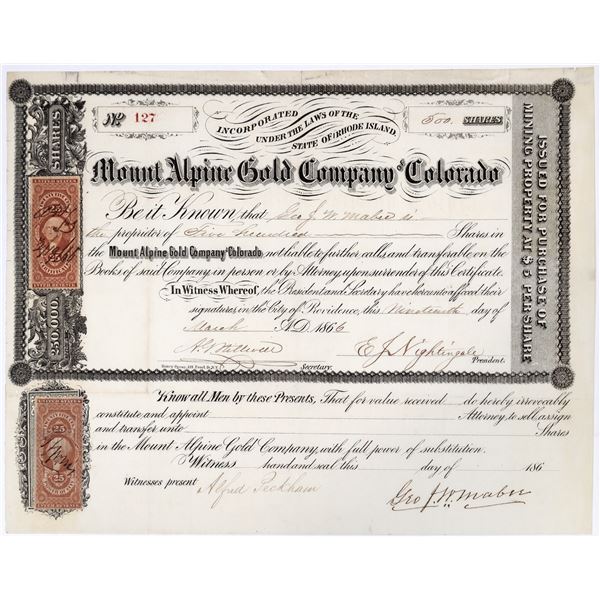 No 127
INCORPORATED
UNDER THE LAWS OF THE
STATE OF RHODE ISLAND.
500. SHARES
Mount Alpine Gold Company of Colorado
Be it Known, that Geo J. W. Mabee is
the proprietor of Five hundred Shares in
the Mount Alpine Gold Company of Colorado not liable to further calls and transferable on the
Books of said Company, in person or by Attorney upon surrender of this Certificate.
In Witness Whereof, the President and Secretary have hereunto affixed their
signatures, in the City of Providence, this Nineteenth day of
March A.D. 1866
E J Nightingale
Secretary.
President.
SHARES
230,000
ISSUED FOR PURCHASE OF
MINING PROPERTY AT $5 PER SHARE
25
Know all Men by these Presents, That for value received do hereby irrevocably
constitute and appoint Attorney to sell, assign
and transfer unto Shares
in the Mount Alpine Gold Company, with full power of substitution.
Witness hand and seal this day of 186
Witnesses present
Alfred Peckham
Geo J. W. Mabee
25
25